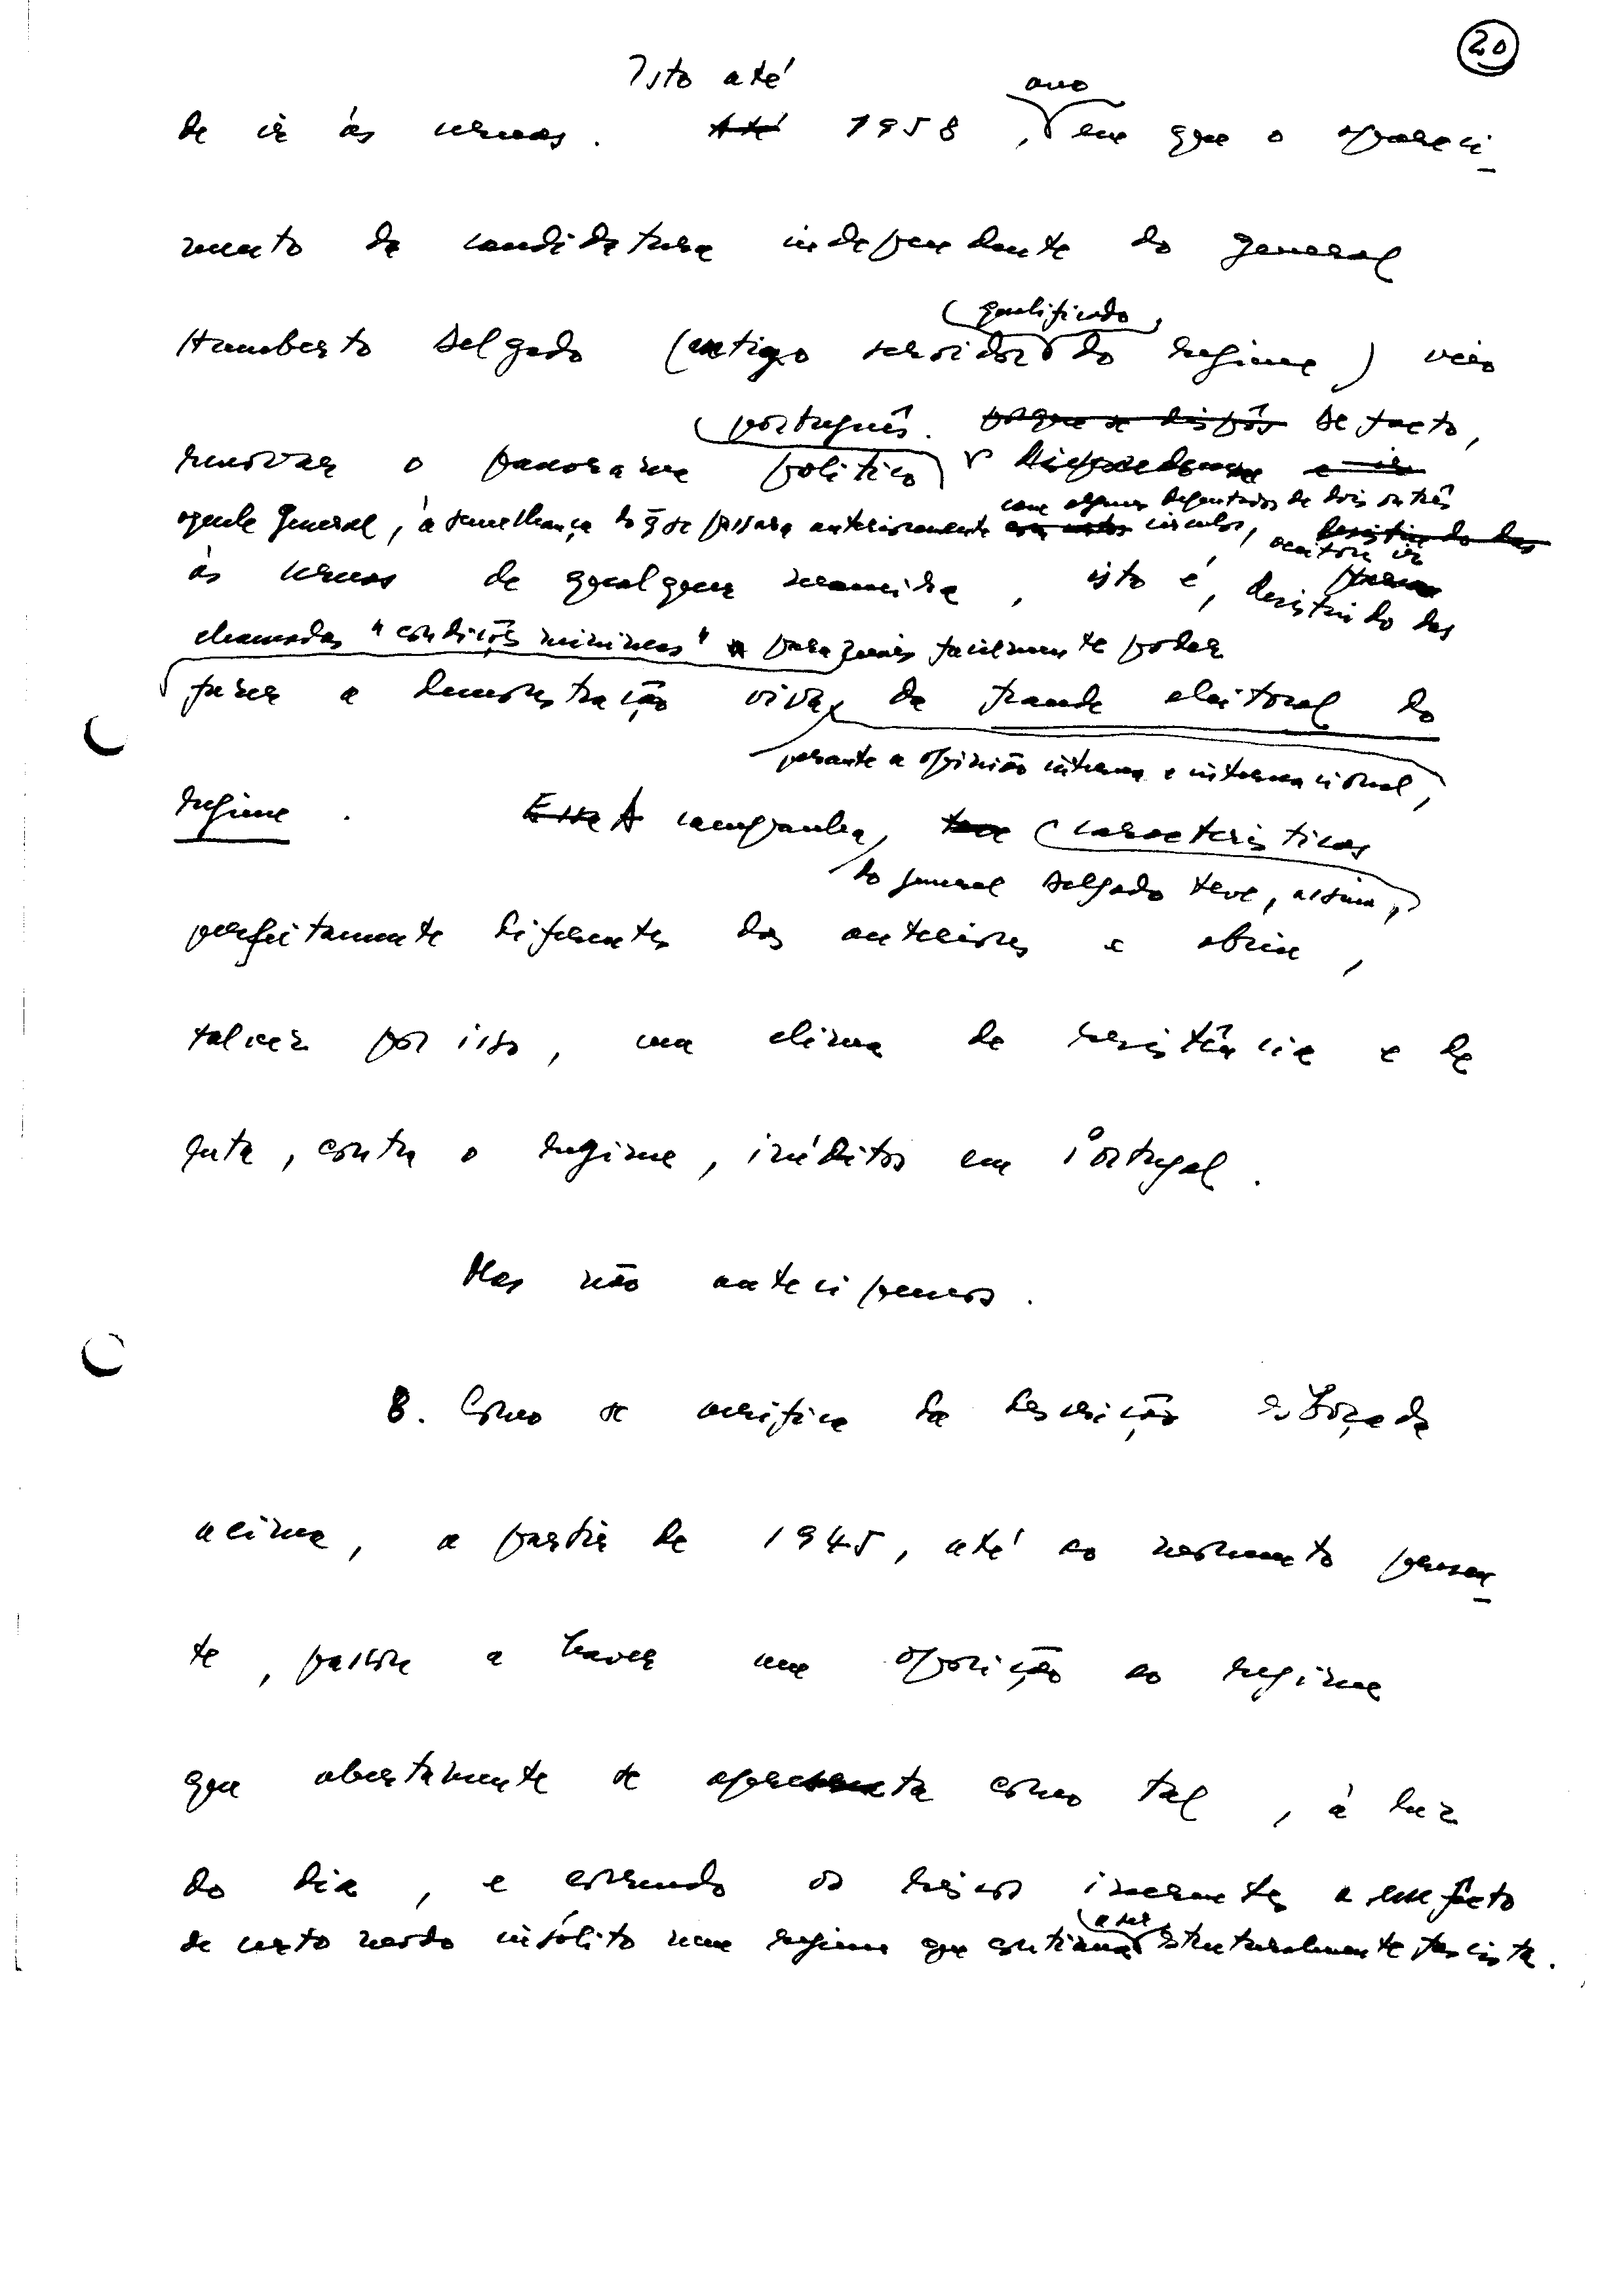 20
Isto até
ano
de ir às urnas. Até 1958, em que o apareci-
mento da candidatura independente do general
qualificado
Humberto Delgado (antigo servidor do regime) veio
português. porque se dispôs De facto,
renovar o panorama político e ir
aquele general, à semelhança do q̃ se passara anteriormente com alguns deputados de dois ou três círculos, desistindo das
aceitou ir
às urnas de qualquer maneira, isto é, desistindo das
chamadas "condições mínimas" para mais facilmente poder
fazer a demonstração viva da fraude eleitoral do
perante a opinião interna e internacional,
regime. Essa A campanha, teve características
do general Delgado teve, assim,
perfeitamente diferentes das anteriores e abriu,
talvez por isso, um clima de resistência e de
luta, contra o regime, inéditos em Portugal.
Mas não antecipemos.
8. Como se verifica da descrição esboçada
acima, a partir de 1945, até ao momento presen-
te, passou a haver uma oposição ao regime
que abertamente se apresenta como tal, à luz
do dia, e correndo os riscos inerentes a esse facto
a ser
de certo modo insólito num regime que continua estruturalmente fascista.